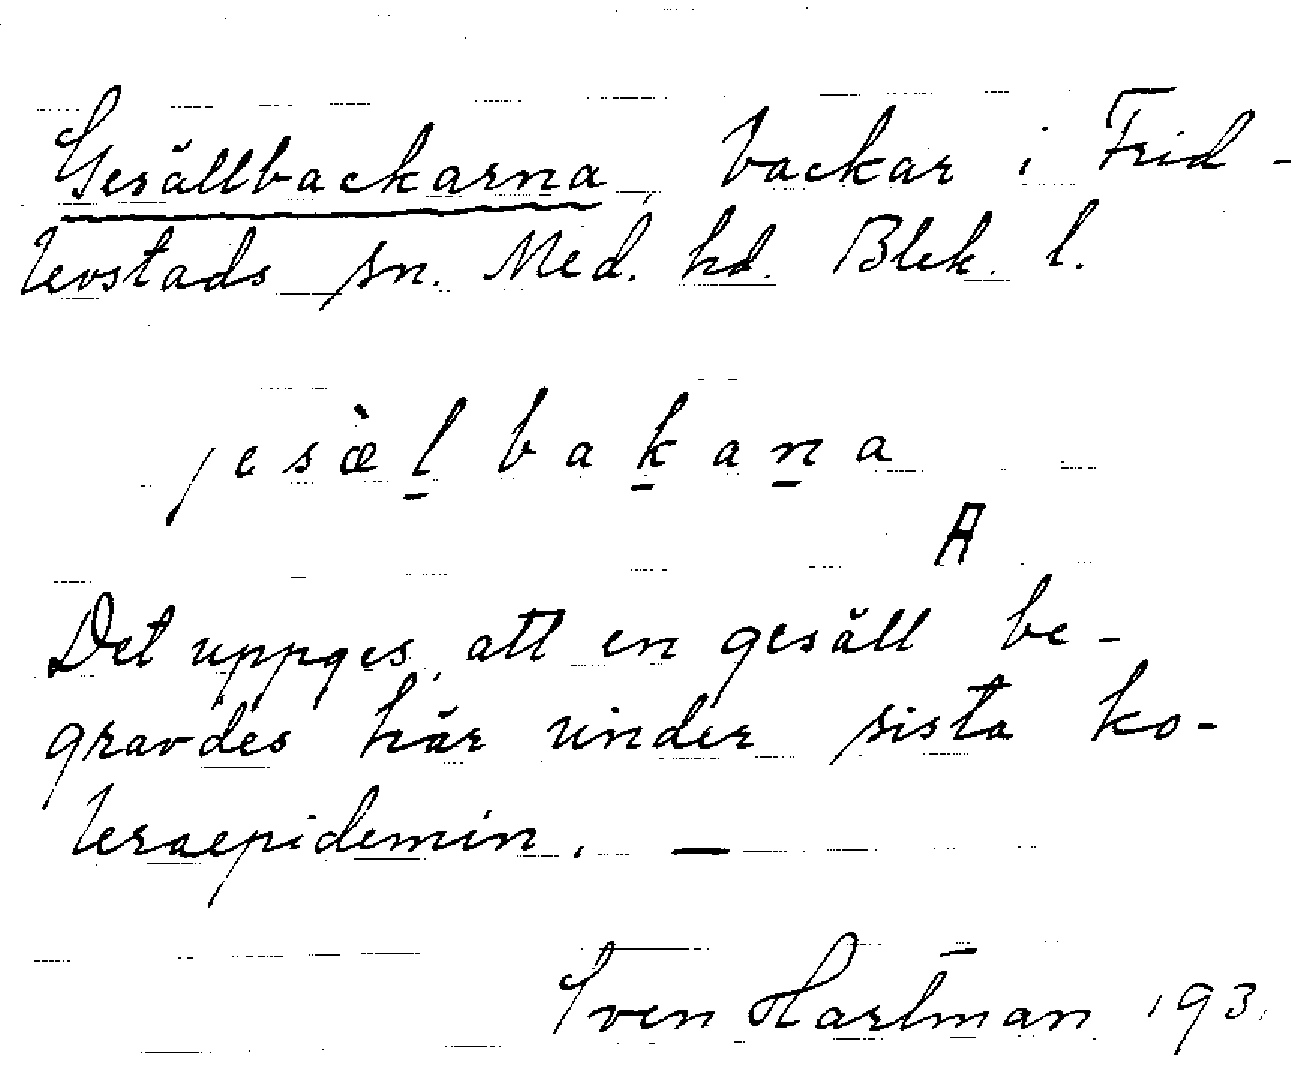 Gesällbackarna, backar i Frid-
levstads sn. Med. hd. Blek. l.
jesæ̀l bakana
A
Det uppges, att en gesäll be-
gravdes här under sista ko-
leraepidemin. —
Sven Hartman 193